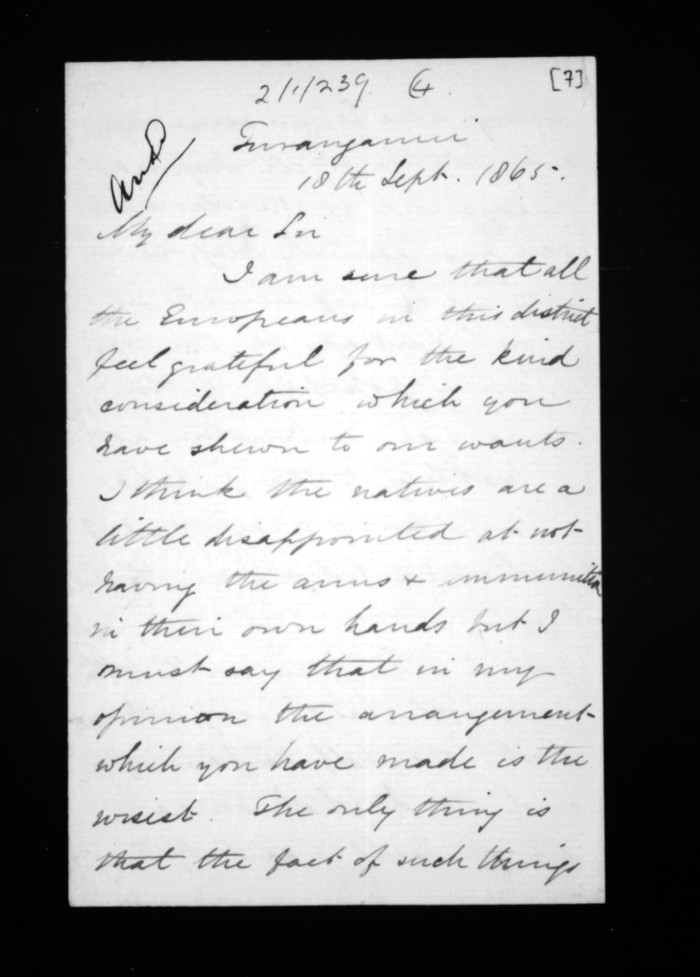 2/1/239. (4.
[7]
Ansd
Turanganui
18th Sept. 1865.
My dear Sir
I am sure that all
the Europeans in this district
feel grateful for the kind
consideration which you
have shewn to our wants.
I think the natives are a
little disappointed at not
having the arms & ammunition
in their own hands but I
must say that in my
opinion the arrangement
which you have made is the
wisest. The only thing is
that the fact of such things